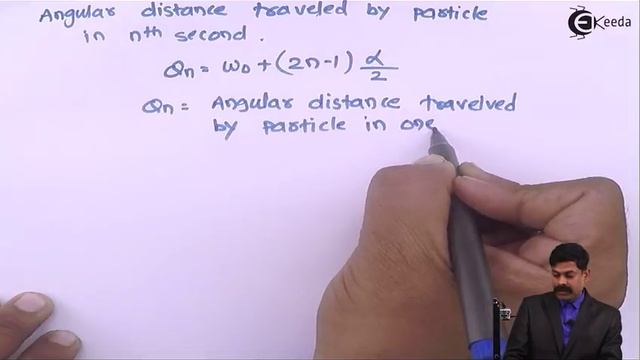 Angular distance traveled by particle
in nth second.
θn = ω0 + (2n-1) α/2
θn = Angular distance travelved
by particle in one
Ekeeda